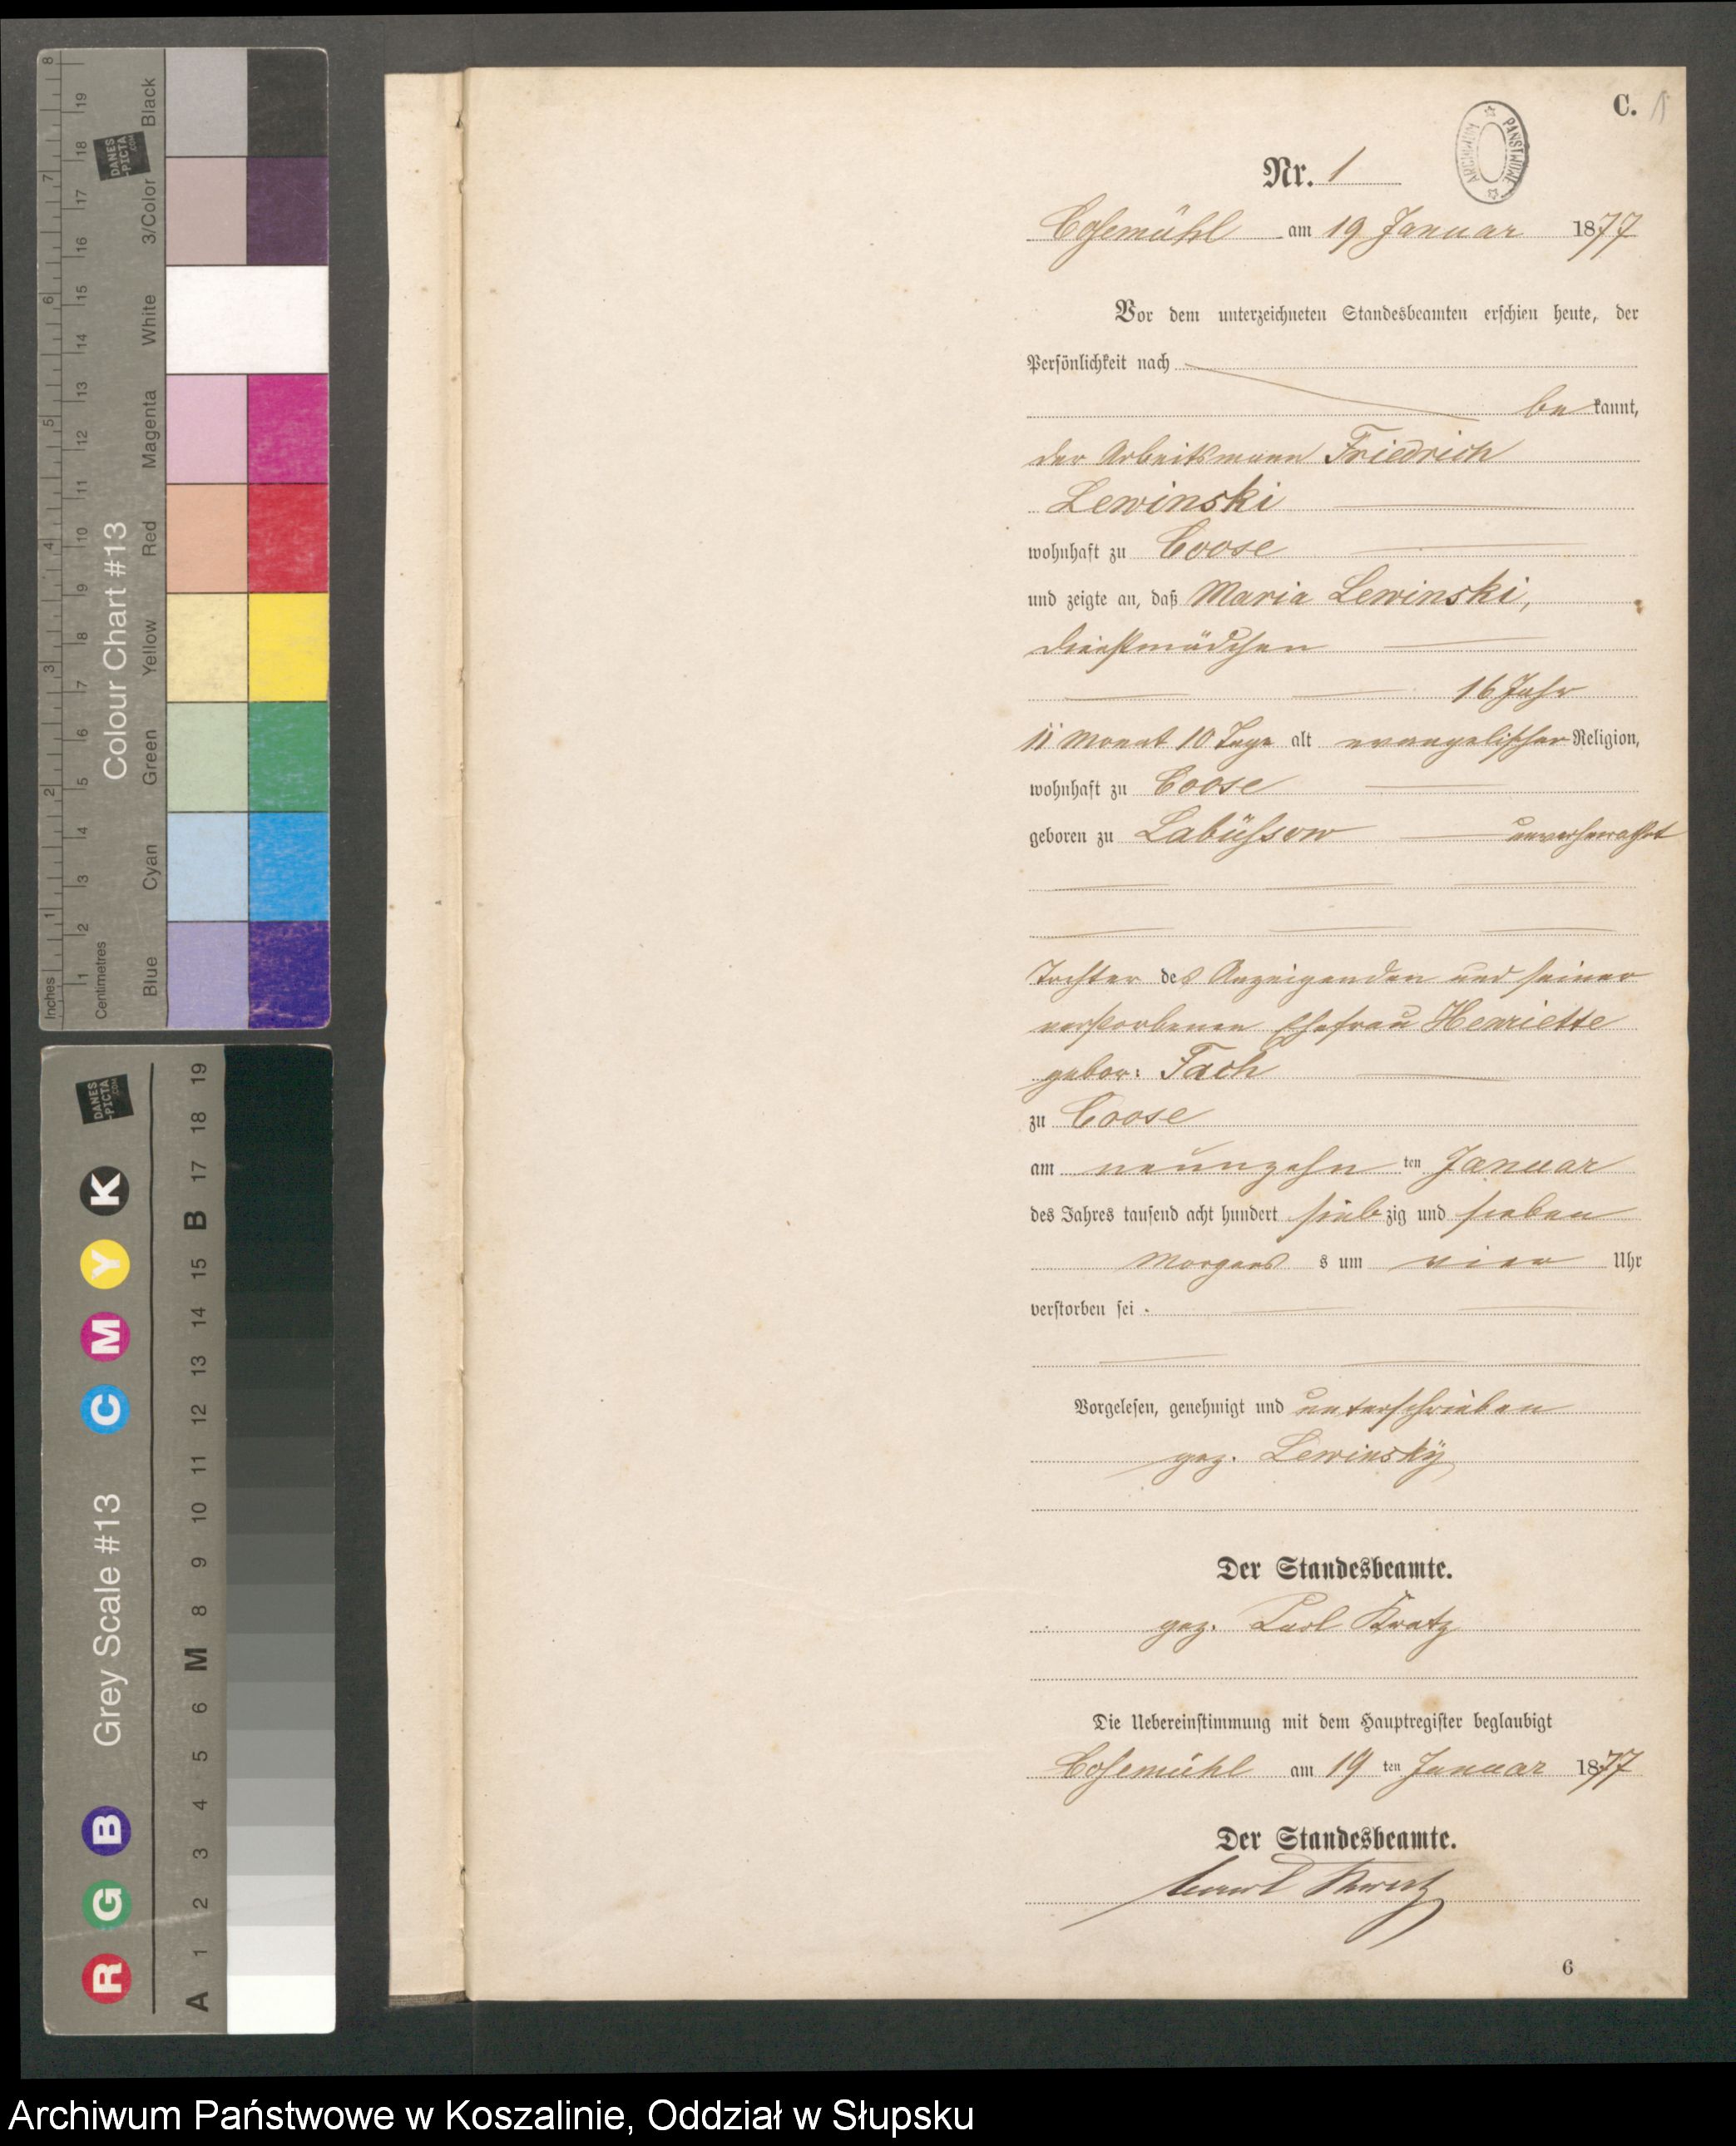 8
7
6
5
4
3
2
1
Inches
19
18
17
16
15
14
13
12
11
10
9
8
7
6
5
4
3
2
1
Centimetres
Colour Chart #13
DANES
-PICTA
.COM
Black
3/Color
White
Magenta
Red
Yellow
Green
Cyan
Blue
DANES
-PICTA
.COM
Grey Scale #13
R G B C M Y K
19
18
17
B
15
14
13
12
11
10
9
8
M
6
5
4
3
2
1
A
C. 1
ARCHIWUM PAŃSTWOWE
Nr. 1
Cosemühl am 19 Januar 1877
Vor dem unterzeichneten Standesbeamten erschien heute, der
Persönlichkeit nach
be kannt,
der Arbeitsmann Friedrich
Lewinski
wohnhaft zu Coose
und zeigte an, daß Maria Lewinski,
Dienstmädchen
16 Jahr
11 Monat 10 Tage alt evangelischer Religion,
wohnhaft zu Coose
geboren zu Labühsow unverheirathet
Tochter des Anzeigenden und seiner
verstorbenen Ehefrau Henriette
gebor: Fach
zu Coose
am neunzehn ten Januar
des Jahres tausend acht hundert sieb zig und sieben
Morgens s um vier Uhr
verstorben sei.
Vorgelesen, genehmigt und unterschrieben
gez. Lewinsky
Der Standesbeamte.
gez. Carl Kratz
Die Uebereinstimmung mit dem Hauptregister beglaubigt
Cosemühl am 19 ten Januar 1877
Der Standesbeamte.
6
Archiwum Państwowe w Koszalinie, Oddział w Słupsku